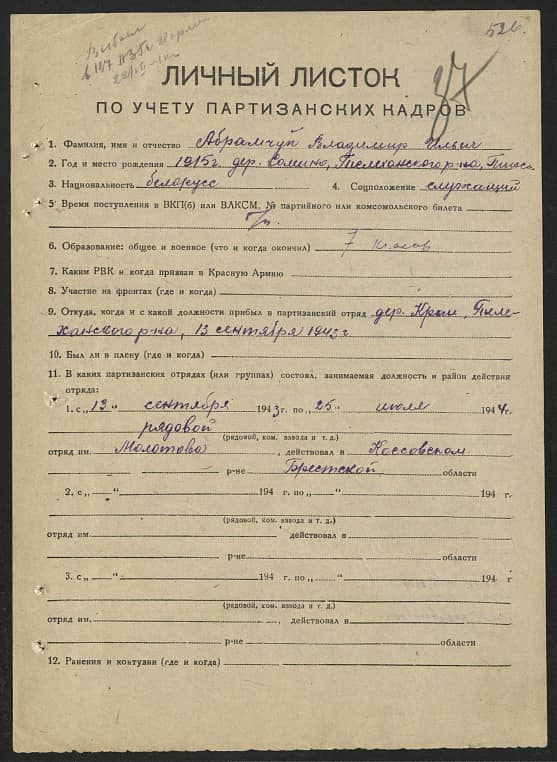 Выбыл
526
37
ЛИЧНЫЙ ЛИСТОК
ПО УЧЕТУ ПАРТИЗАНСКИХ КАДРОВ
1. Фамилия, имя и отчество Абрамчук Владимир Ильич
2. Год и место рождения 1915 г. дер. Сомино, Телеханского р-на, Пинск.
3. Национальность белорусс 4. Соцположение служащий
5. Время поступления в ВКП(б) или ВЛКСМ, № партийного или комсомольского билета
6. Образование: общее и военное (что и когда окончил) 7 класов
7. Каким РВК и когда призван в Красную Армию
8. Участие на фронтах (где и когда)
9. Откуда, когда и с какой должности прибыл в партизанский отряд дер. Краи, Теле-
ханского р-на, 13 сентября 1943 г.
10. Был ли в плену (где и когда)
11. В каких партизанских отрядах (или группах) состоял, занимаемая должность и район действии
отряда:
1. с „13" сентября 1943 г. по „25" июля 1944 г.
рядовой
(рядовой, ком. взвода и т. д.)
отряд им. Молотова, действовал в Коссовском
р-не Брестской области
2. с „ " 194 г. по „ " 194 г.
(рядовой, ком. взвода и т. д.)
отряд им. действовал в
р-не области
3. с „ " 194 г. по „ " 194 г
(рядовой, ком. взвода и т. д.)
отряд им. , действовал в
р-не области
12. Ранения и контузии (где и когда)